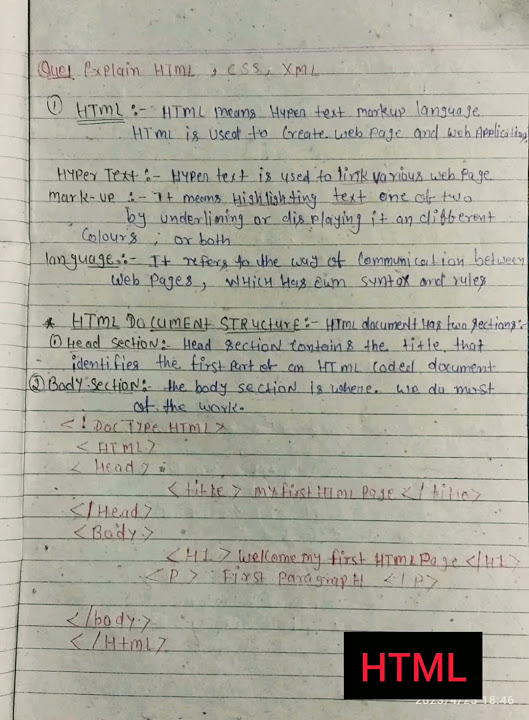 Que1 Explain HTML , CSS, XML
① HTML :- HTML means Hyper text markup language
HTML is used to Create web Page and web Application
HYPer Text :- HYPer text is used to link various web Page
mark-up :- It means Highlighting text one of two
by underlining or displaying it an different
Colours , or both
language :- It refers to the way of Communication between
web Pages, WHICH Has own syntax and rules
* HTML DOCUMENT STRUCTURE :- HTML document Has two sections:-
① Head Section:- Head section Contains the title, that
identifies the first Part of an HTML Coded document
② Body Section:- the body section is where we do most
of the work.
<! Doc TYPE HTML>
< HTML>
< Head >
< title > my first HTML Page </ title>
</ Head>
< Body >
< H1 > Welcome my first HTML Page </ H1>
< P > First ParagrapH </ P>
</ body >
</ Html >
HTML
2023/4/23 18:46